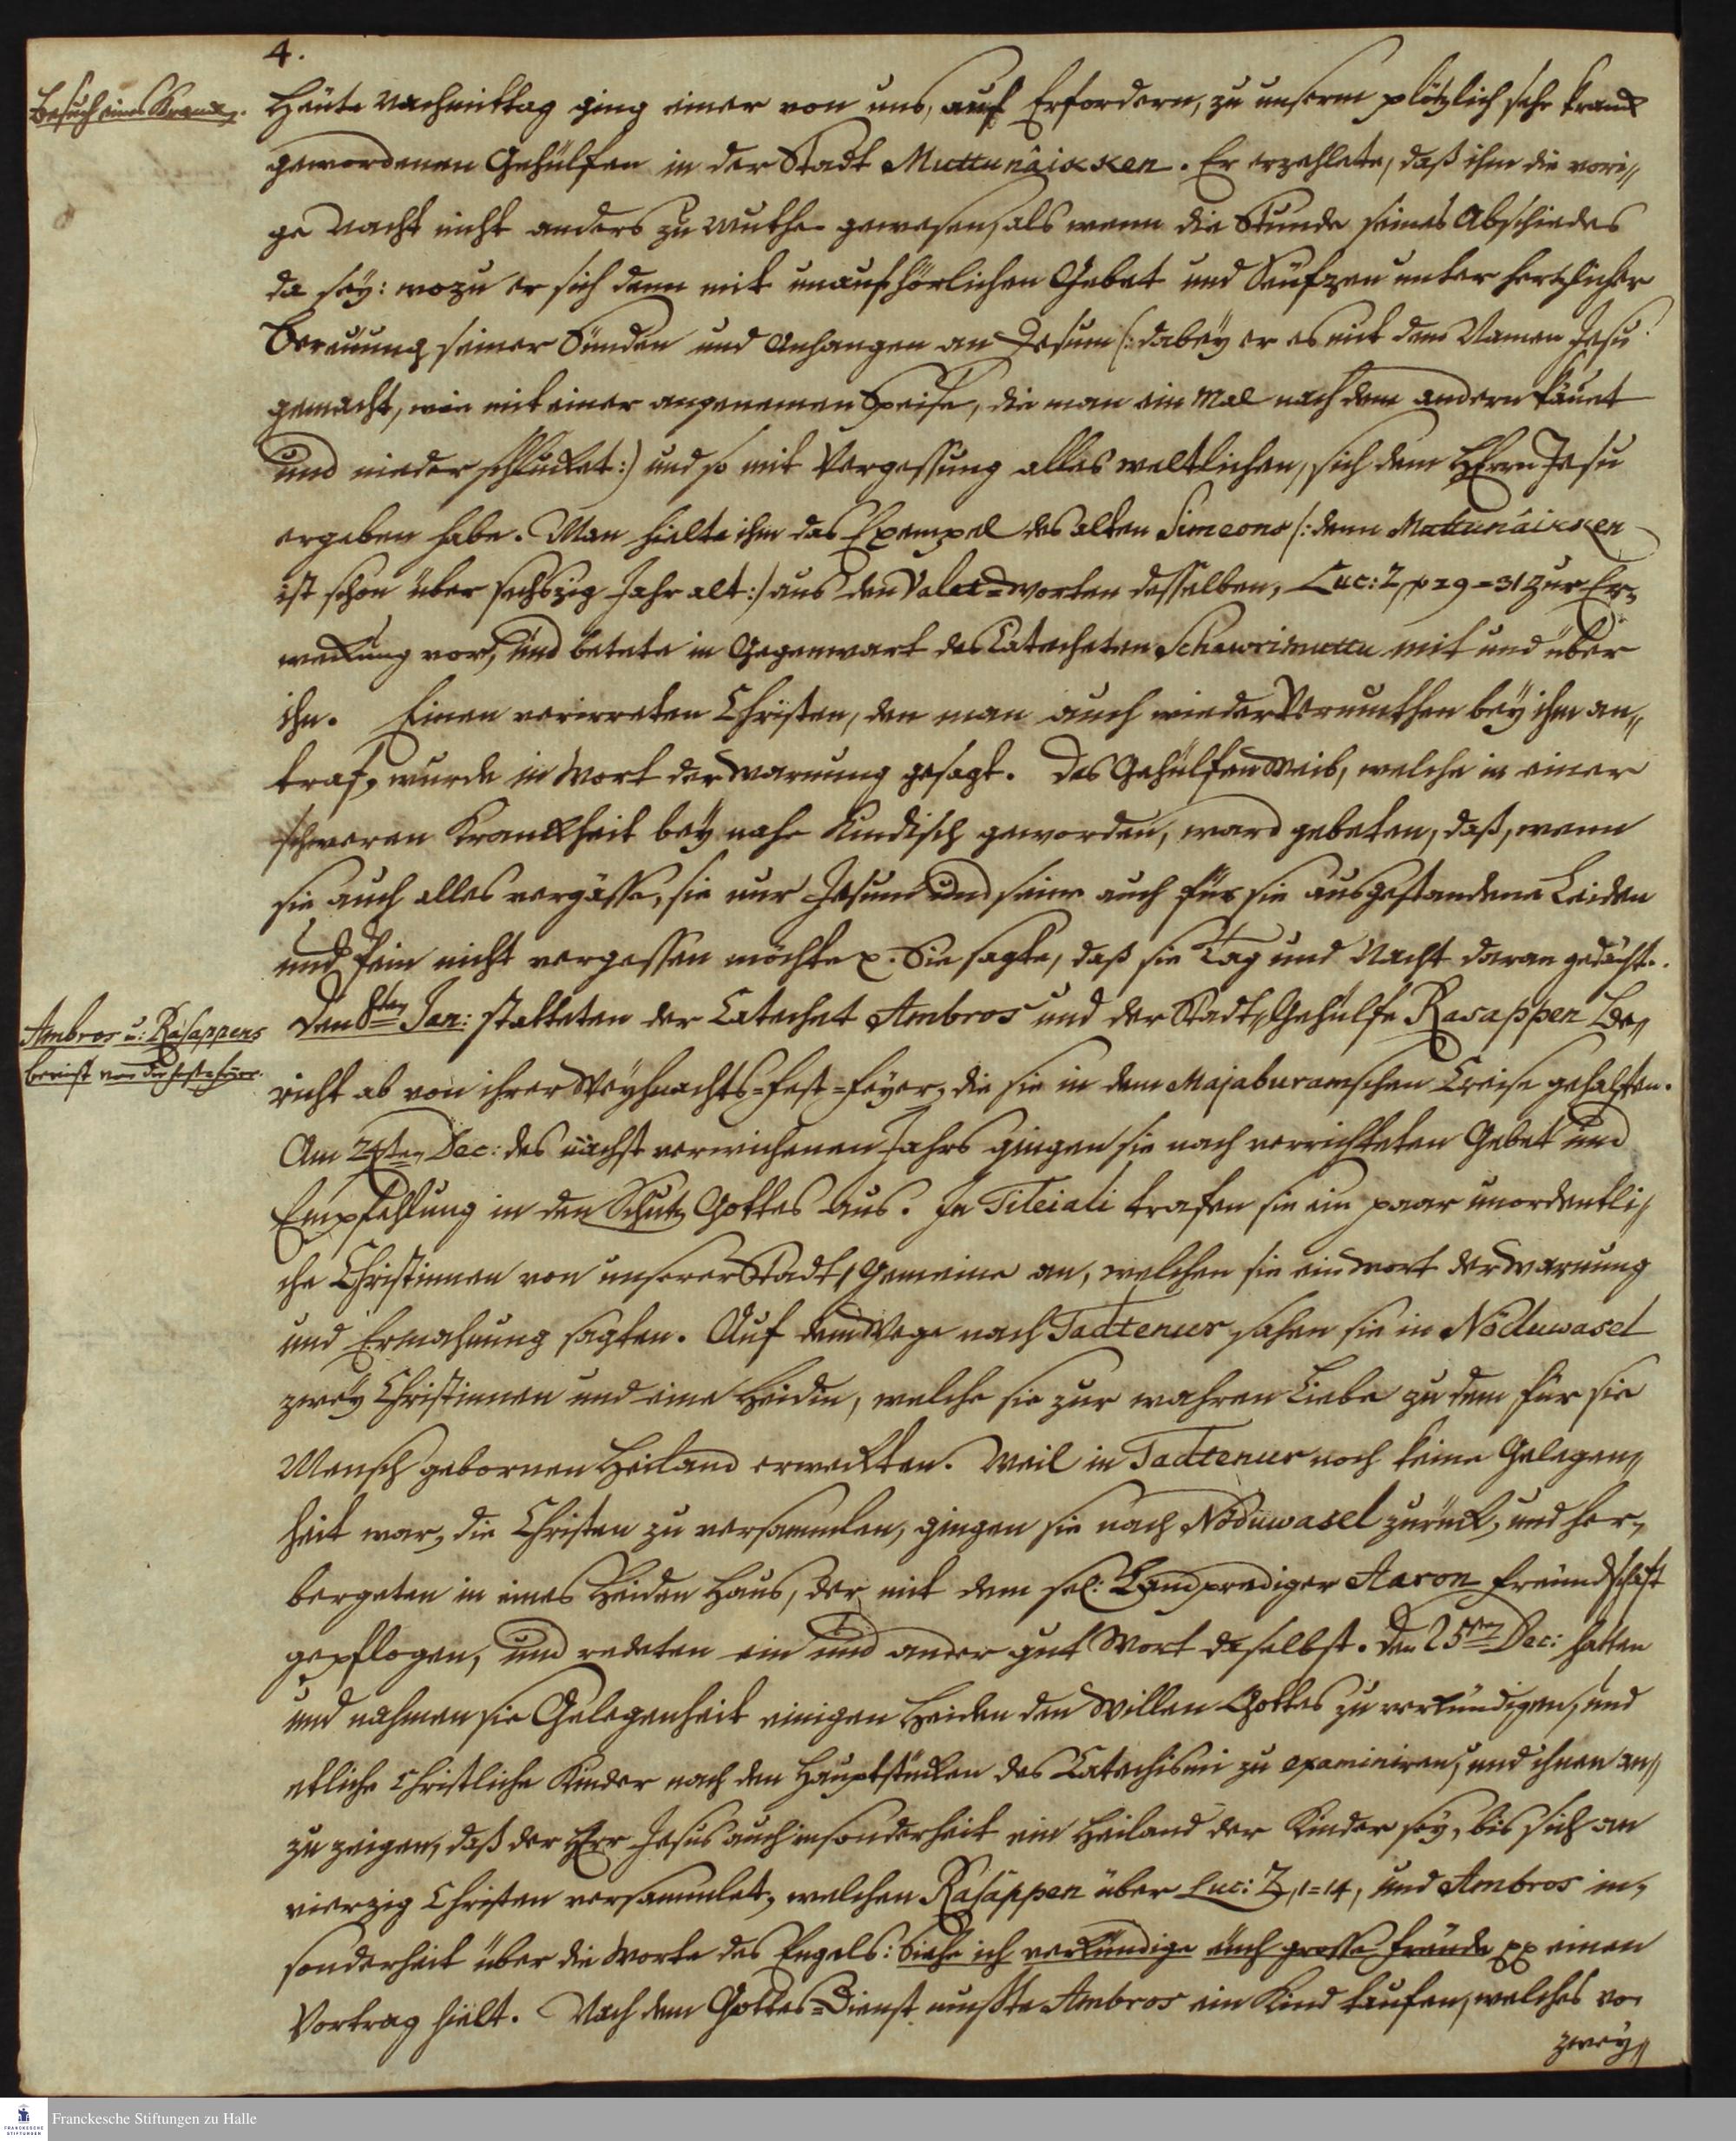 4.
Besuch eines Kranken.
Heute Nachmittag ging einer von uns, auf Erfordern, zu unserm plötzlich sehr kranck
gewordenen Gehülfen in der Stadt Muttunâicken. Er erzehlete, daß ihm die vori„
ge Nacht nicht anders zu Muthe gewesen, als wenn die Stunde seines Abschiedes
da seÿ: wozu er sich denn mit unaufhörlichen Gebet und Seufzen unter hertzlicher
Bereuung seiner Sünden und Anhangen an Jesum (: dabeÿ er es mit dem Namen Jesu
gemacht, wie mit einer angenemen Speise, die man ein Mal nach dem andern käuet
und nieder schlucket:) und so mit Vergessung alles weltlichen, sich dem HErrn Jesu
ergeben habe. Man hielte ihm das Exempel des alten Simeons (: denn Muttunâicken
ist schon über sechszig Jahr alt:) aus den Valet=Worten desselben, Luc: 2, v 29=31 zur Er„
weckung vor, und betete in Gegenwart des Catecheten Schawrimuttu mit und über
ihn. Einen verirreten Christen, den man auch wieder Vermuthen beÿ ihm an„
traf, wurde in Wort der Warnung gesagt. Des Gehülfen Weib, welche in einer
schweren Kranckheit beÿ nahe kindisch geworden, ward gebeten, daß, wenn
sie auch alles vergässe, sie nur Jesum und seine auch für sie ausgestandene Leiden
und Pein nicht vergessen möchte p. Sie sagte, daß sie Tag und Nacht daran gedächte.
Ambros u: Râsappens
bericht von der fest=feÿer.
Den 8ten Jan: statteten der Catechet Ambros und der Stadt„Gehülfe Rasappen Be„
richt ab von ihrer Weÿhnachts=fest=feÿer, die sie in dem Majaburamschen Creise gehalten.
Am 24ten Dec: des nächst verwichenen Jahrs gingen sie nach verrichteten Gebet und
Empfehlung in den Schutz Gottes aus. In Tileiali trafen sie ein paar unordentli„
che Christinnen von unserer Stadt„Gemeine an, welchen sie ein Wort der Warnung
und Ermahnung sagten. Auf dem Wege nach Tadtenur sahen sie in Nöduwasel
zweÿ Christinnen und eine Heidin, welche sie zur wahren Liebe zu dem für sie
Mensch gebornen Heiland erweckten. Weil in Tadtenur noch keine Gelegen„
heit war, die Christen zu versammlen, gingen sie nach Nöduwasel zurück, und her„
bergeten in eines Heiden Haus, der mit dem sel: Landprediger Aaron freundschaft
gepflogen, und redeten ein und ander gut Wort daselbst. Den 25ten Dec: hatten
und nahmen sie Gelegenheit einigen Heiden den Willen Gottes zu verkündigen, und
etliche Christliche Kinder nach den Hauptstücken des Catechismi zu examiniren, und ihnen an„
zu zeigen, daß der HErr Jesus auch insonderheit ein Heiland der Kinder seÿ, bis sich an
vierzig Christen versammlet, welchen Râsappen über Luc: 2, 1=14, und Ambros in„
sonderheit über die Worte des Engels: Siehe ich verkündige euch grosse freude pp einen
Vortrag hielt. Nach dem Gottes=Dienst muste Ambros ein Kind taufen, welches vor
zweÿ„
Franckesche Stiftungen zu Halle
FRANCKESCHE
STIFTUNGEN